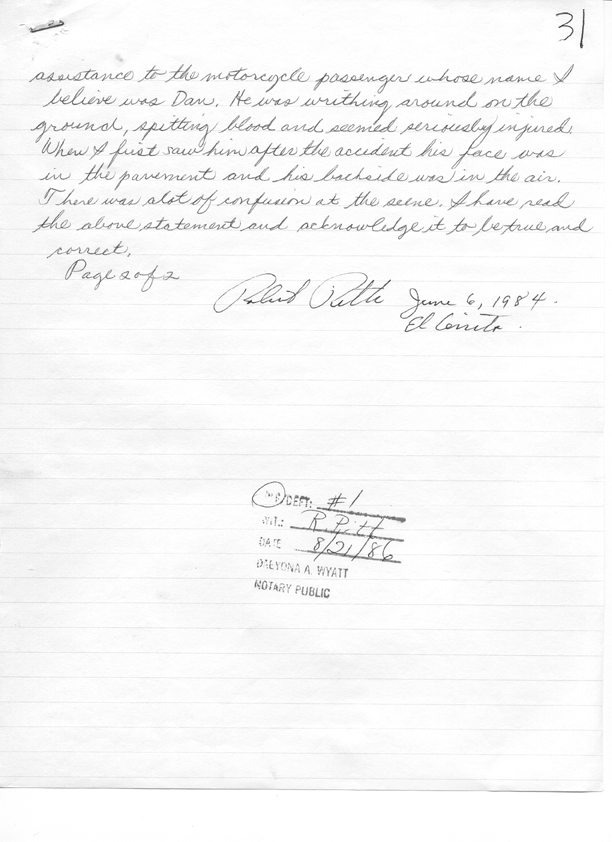 31
assistance to the motorcycle passenger whose name I
believe was Dan. He was writhing around on the
ground, spitting blood and seemed seriously injured.
When I first saw him after the accident his face was
in the pavement and his backside was in the air.
There was alot of confusion at the scene. I have read
the above statement and acknowledge it to be true and
correct.
Page 2 of 2
Robert June 6, 1984.
El Cerrito.
/DEFT: #1
WIT.: R. Pitt
DATE 8/21/86
A. WYATT
NOTARY PUBLIC